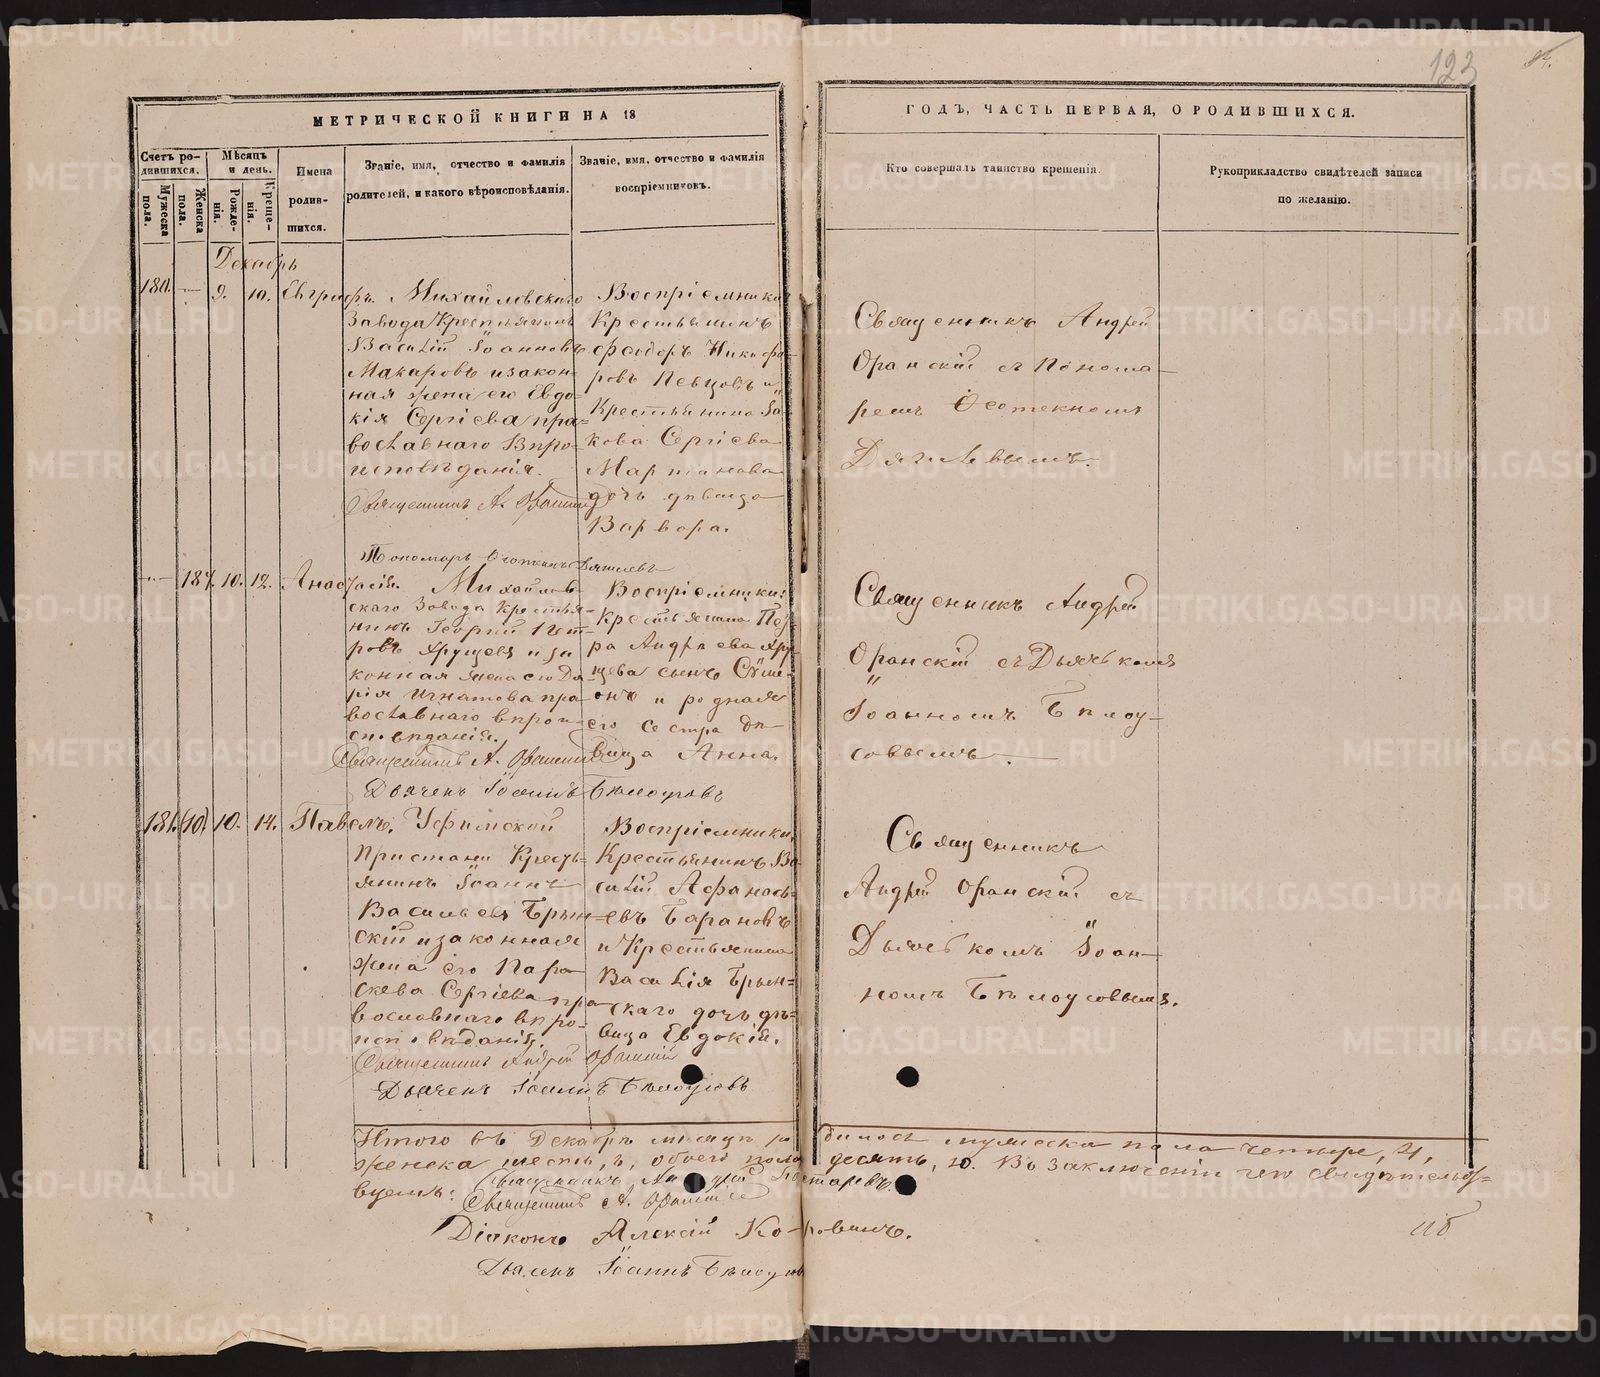 123
84.
МЕТРИЧЕСКОЙ КНИГИ НА 18
ГОДЪ, ЧАСТЬ ПЕРВАЯ, О РОДИВШИХСЯ.
Счетъ ро-
дившихся.
Мужеска
пола.
Женска
пола.
Мѣсяцъ
и день.
Рожде-
нія.
Креще-
нія.
Имена
родив-
шихся.
Званіе, имя, отчество и фамилія
родителей, и какого вѣроисповѣданія.
Званіе, имя, отчество и фамилія
воспріемниковъ.
Кто совершалъ таинство крещенія.
Рукоприкладство свидѣтелей записи
по желанію.
Декабрь
180. — 9. 10. Евграфъ.
Михайловскаго
Завода Крестьянинъ
Василій Іоанновъ
Макаровъ и закон-
ная жена его Евдо-
кія Сергіева пра-
вославнаго вѣро-
исповѣданія.
Священникъ А. Оранскій
Пономарь Ѳеотекнъ Дягилевъ
Воспріемники
Крестьянинъ
Феодоръ Никифо-
ровъ Певцовъ и
Крестьянина Іа-
кова Сергіева
Мартьянова
дочь дѣвица
Варвара.
Священникъ Андрей
Оранскій съ Понома-
ремъ Ѳеотекномъ
Дягилевымъ.
— 187. 10. 12. Анастасія.
Михайлов-
скаго Завода Кресть-
янинъ Георгій Пет-
ровъ Хрущевъ и за-
конная жена его Да-
рія Игнатова пра-
вославнаго вѣрои-
сповѣданія.
Священникъ А. Оранскій
Дьячекъ Іоаннъ Бѣлоусовъ
Воспріемники:
Крестьянина Пет-
ра Андреева Хру-
щева сынъ Симе-
онъ и родная
его сестра дѣ-
вица Анна.
Священникъ Андрей
Оранскій съ Дьячкомъ
Іоанномъ Бѣлоу-
совымъ.
181. 10. 14. Павелъ.
Уфимской
Пристани Кресть-
янинъ Іоаннъ
Васильевъ Брын-
скій и законная
жена его Пара-
скева Сергіева пра-
вославнаго вѣро-
исповѣданія.
Священникъ Андрей Оранскій
Дьячекъ Іоаннъ Бѣлоусовъ
Воспріемники
Крестьянинъ Ва-
силій Афанась-
евъ Барановъ
и Крестьянина
Василія Брын-
скаго дочь дѣ-
вица Евдокія.
Священникъ
Андрей Оранскій съ
Дьячкомъ Іоан-
номъ Бѣлоусовымъ.
Итого въ Декабрѣ мѣсяцѣ родилось мужеска пола четыре, 4,
женска шесть, 6, обоего пола десять, 10. Въ заключеніи чего свидѣтельст-
вуемъ: Священникъ
Священникъ А. Оранскій
Діаконъ Алексій Коровинъ.
Дьячекъ Іоаннъ Бѣлоусовъ
METRIKI.GASO-URAL.RU